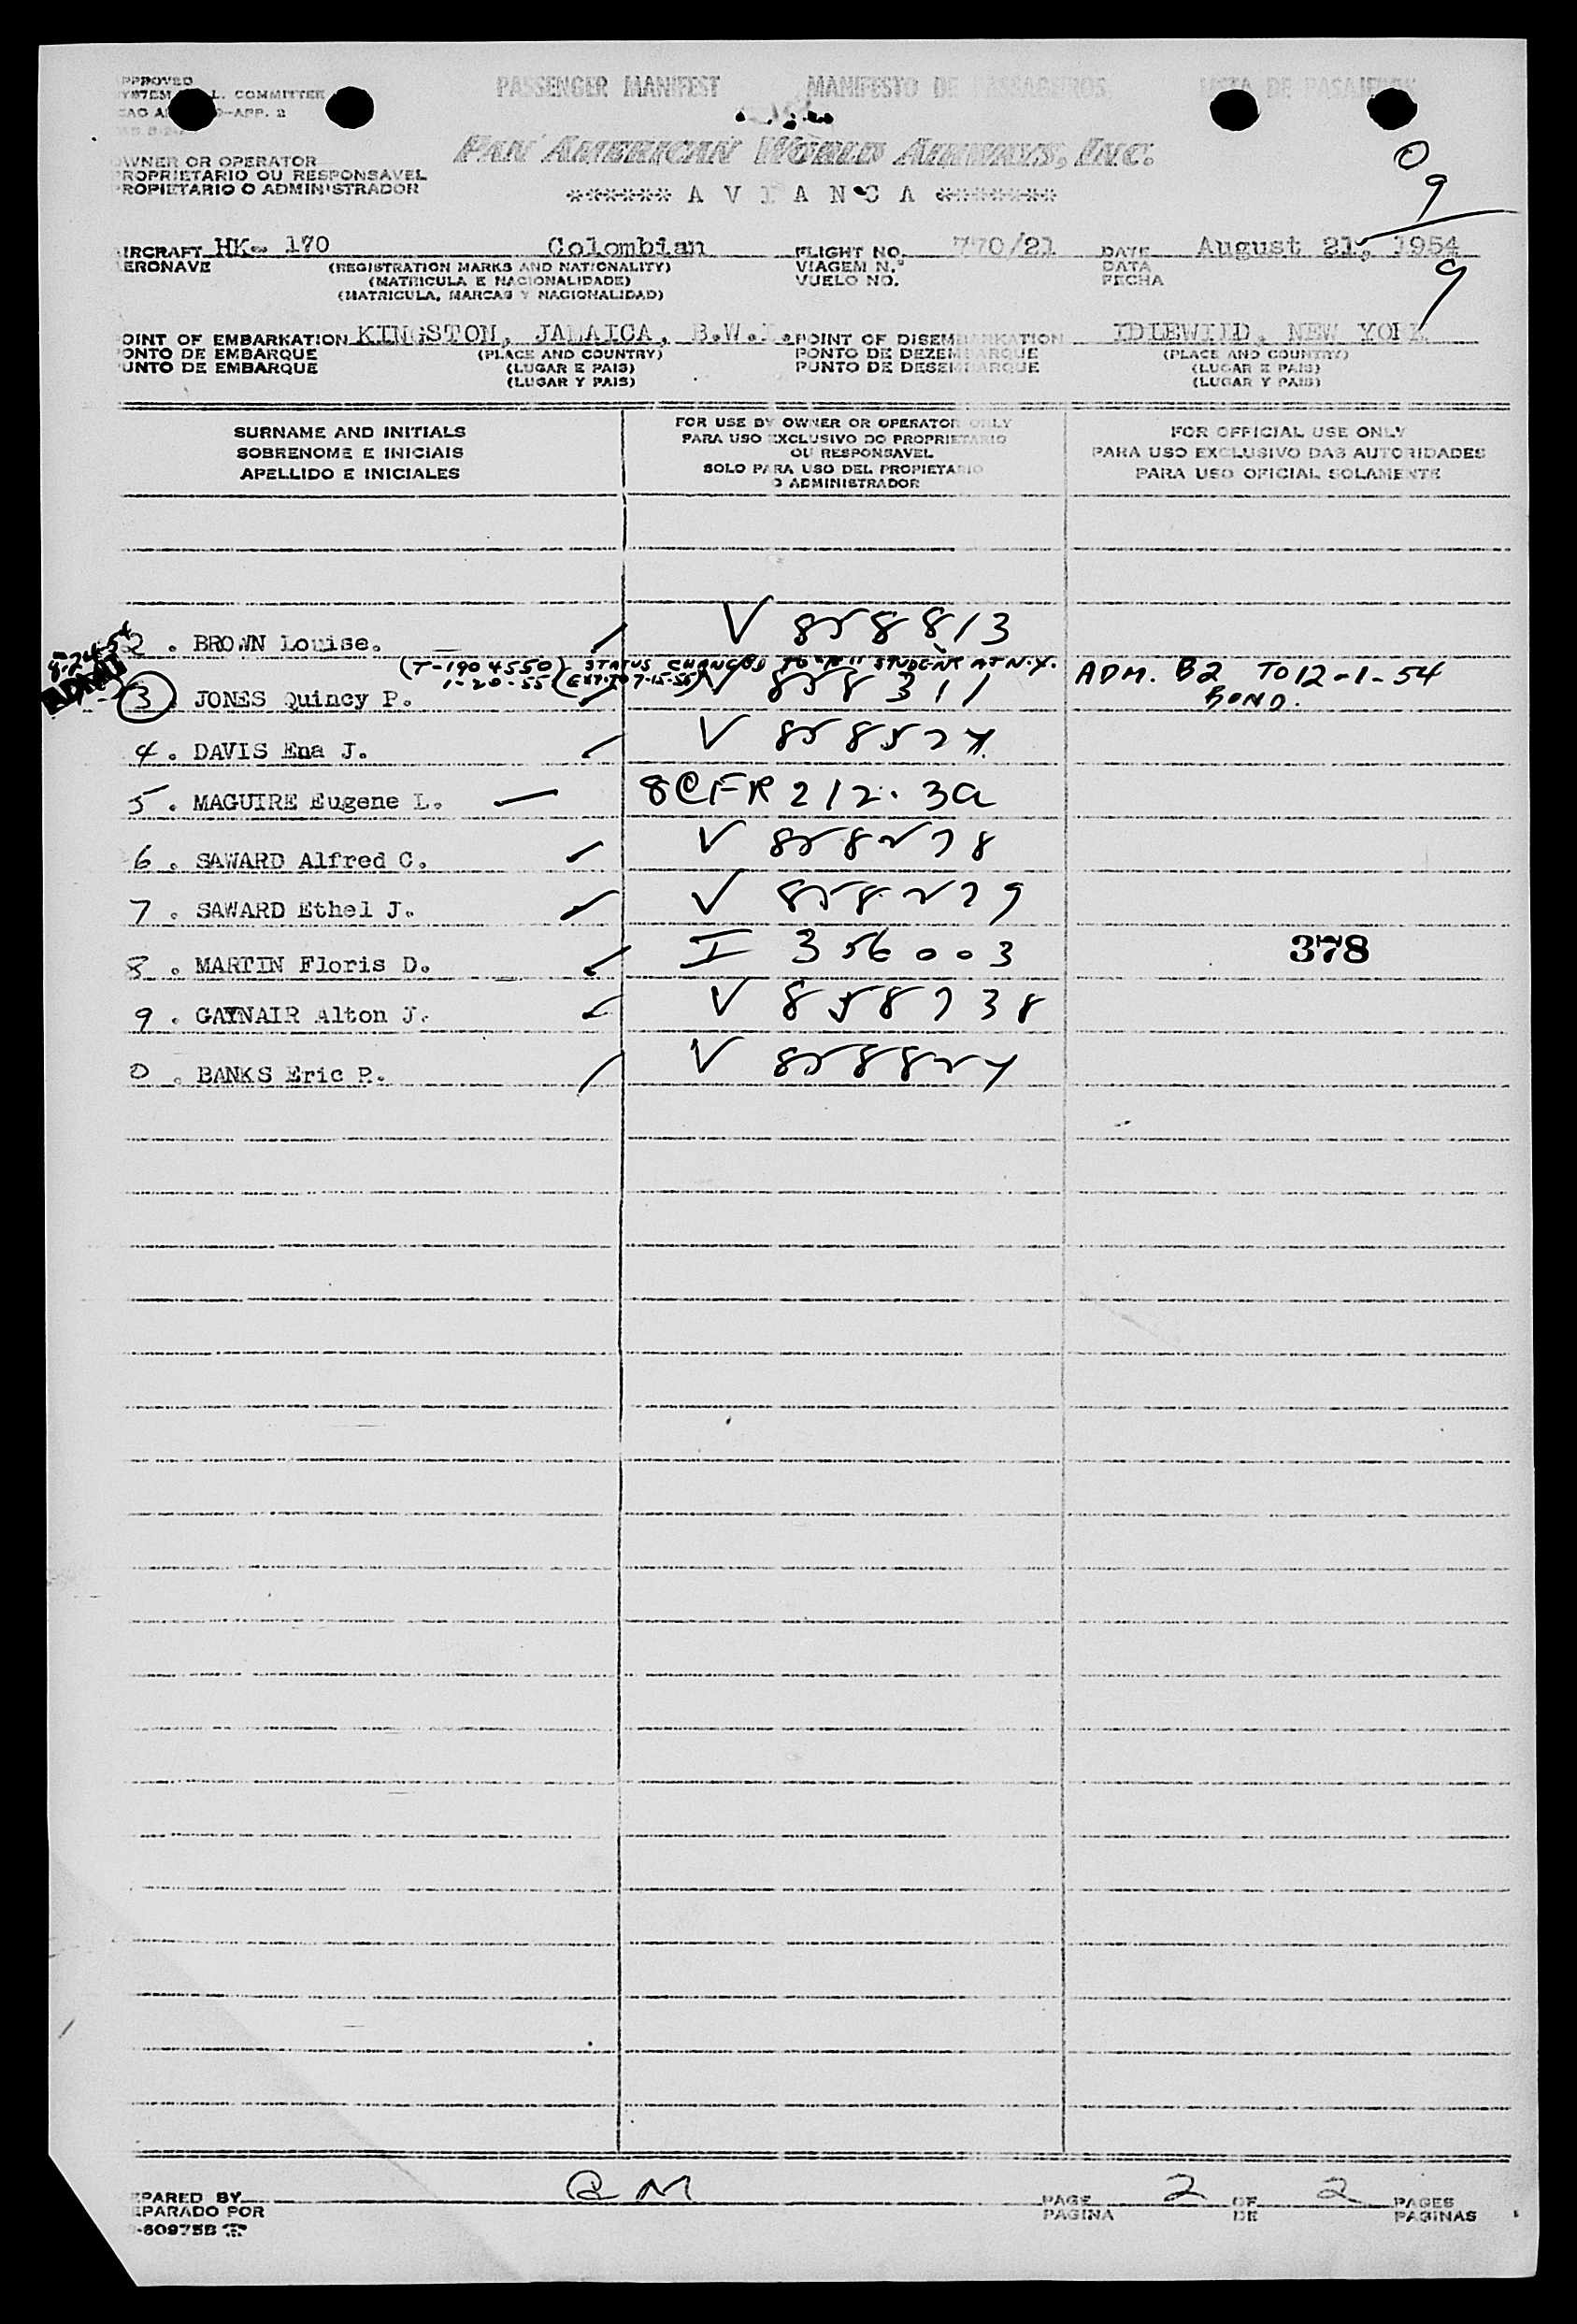 PASSENGER MANIFEST MANIFESTO DE PASSAGEIROS LISTA DE PASAJEROS
PPROVED
COMMITTEE
APP. 2
PAN AMERICAN WORLD AIRWAYS, INC.
WNER OR OPERATOR
ROPRIETARIO OU RESPONSAVEL
ROPIETARIO O ADMINISTRADOR
******* A V I A N C A ********
0
9
9
IRCRAFT HK- 170 Colombian FLIGHT NO. 770/21 DATE August 21, 1954
ERONAVE (REGISTRATION MARKS AND NATIONALITY) VIAGEM N.° DATA
(MATRICULA E NACIONALIDADE) VUELO NO. FECHA
(MATRICULA, MARCAS Y NACIONALIDAD)
OINT OF EMBARKATION KINGSTON, JAMAICA, B.W.I. POINT OF DISEMBARKATION IDLEWILD, NEW YORK
ONTO DE EMBARQUE (PLACE AND COUNTRY) PONTO DE DEZEMBARQUE (PLACE AND COUNTRY)
UNTO DE EMBARQUE (LUGAR E PAIS) PUNTO DE DESEMBARQUE (LUGAR E PAIS)
(LUGAR Y PAIS) (LUGAR Y PAIS)
SURNAME AND INITIALS
SOBRENOME E INICIAIS
APELLIDO E INICIALES
FOR USE BY OWNER OR OPERATOR ONLY
PARA USO EXCLUSIVO DO PROPRIETARIO
OU RESPONSAVEL
SOLO PARA USO DEL PROPIETARIO
O ADMINISTRADOR
FOR OFFICIAL USE ONLY
PARA USO EXCLUSIVO DAS AUTORIDADES
PARA USO OFICIAL SOLAMENTE
2 . BROWN Louise. V 858813
(T-1904550) STATUS CHANGED TO "F" STUDENT AT N.Y.
1-20-55 (EXT. TO 7-15-55)
ADMIT
3 . JONES Quincy P. V 858311 ADM. B2 TO 12-1-54
BOND.
4 . DAVIS Ena J. V 858524
5 . MAGUIRE Eugene L. 8 CFR 212.3a
6 . SAWARD Alfred C. V 858278
7 . SAWARD Ethel J. V 858279
8 . MARTIN Floris D. I 356003 378
9 . GAYNAIR Alton J. V 858738
0 . BANKS Eric P. V 858824
PARED BY PAGE 2 OF 2 PAGES
EPARADO POR PAGINA DE PAGINAS
-60975B